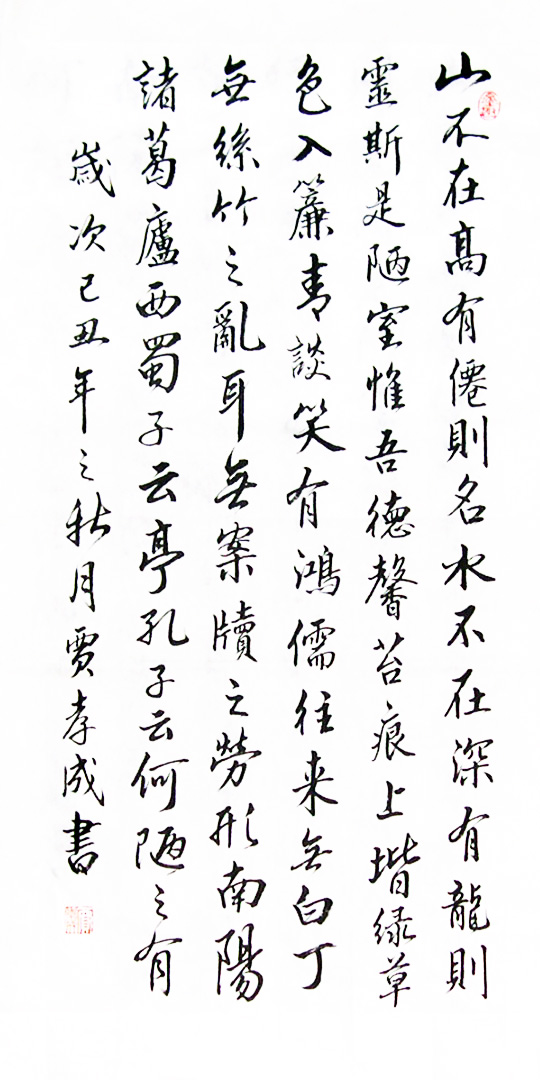 山不在髙有僊則名水不在深有龍則
靈斯是陋室惟吾德馨苔痕上堦緑草
色入簾青談笑有鴻儒往来無白丁
無絲竹之亂耳無案牘之勞形南陽
諸葛廬西蜀子云亭孔子云何陋之有
歲次己丑年之秋月賈孝成書